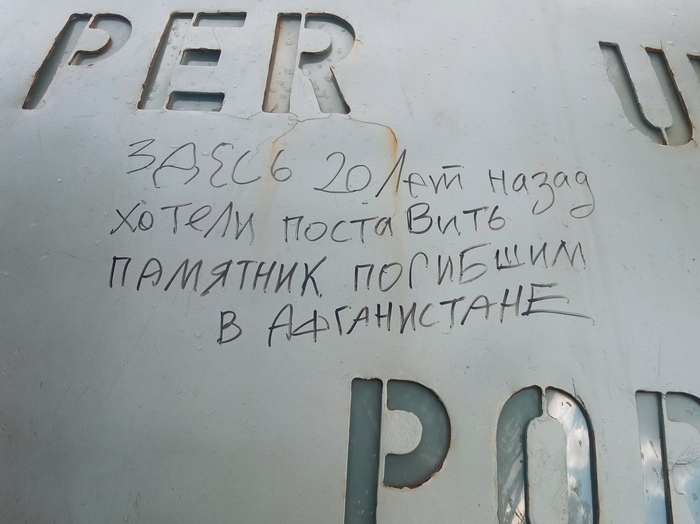 PER U
ЗДЕСЬ 20 лет назад
хотели поставить
ПАМЯТНИК ПОГИБШИМ
В АФГАНИСТАНЕ
POR